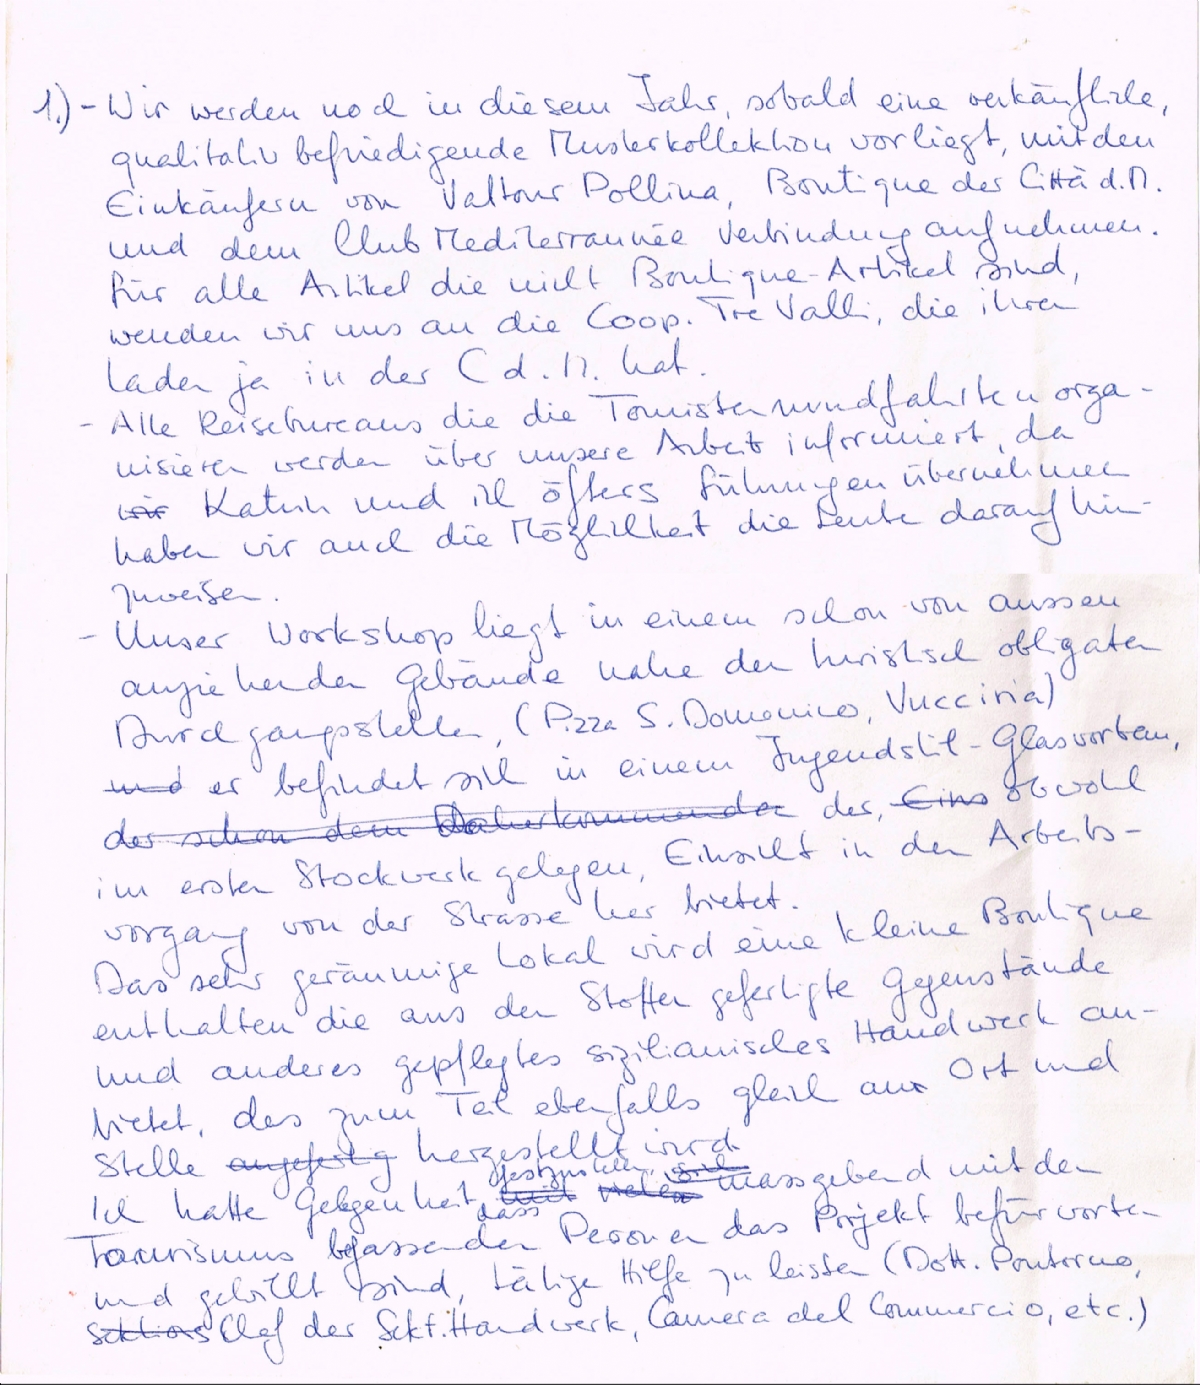 1.) - Wir werden noch in diesem Jahr, sobald eine verkäufliche,
qualitativ befriedigende Musterkollektion vorliegt, mit den
Einkäufern von Valtour Pollina, Boutique der Città d.M.
und dem Club Mediterrannée Verbindung aufnehmen.
Für alle Artikel die nicht Boutique-Artikel sind,
wenden wir uns an die Coop. Tre Valli, die ihren
Laden ja in der C d. M. hat.
- Alle Reisebureaus die die Touristenrundfahrten orga-
nisieren werden über unsere Arbeit informiert, da
wir Katrin und ich öfters Führungen übernehmen
haben wir auch die Möglichkeit die Leute darauf hin-
zuweisen.
- Unser Workshop liegt in einem schon von aussen
anziehenden Gebäude nahe den turistisch obligaten
Durchgangsstellen, (P.zza S. Domenico, Vucciria)
und er befindet sich in einem Jugendstil-Glasvorbau,
der schon dem Daherkommenden der, Eins obwohl
im ersten Stockwerk gelegen, Einsicht in den Arbeits-
vorgang von der Strasse her bietet.
Das sehr geräumige Lokal wird eine kleine Boutique
enthalten die aus den Stoffen gefertigte Gegenstände
und anderes gepflegtes sizilianisches Handwerk an-
bietet, das zum Teil ebenfalls gleich an Ort und
Stelle angefertig hergestellt wird
Ich hatte Gelegenheit festzustellen, dass mit vielen sich massgebend mit den
Tourismus befassenden Personen das Projekt befürworten
und gewillt sind, tätige Hilfe zu leisten (Dott. Pontorno,
Sektions Chef der Sekt. Handwerk, Camera del Commercio, etc.)